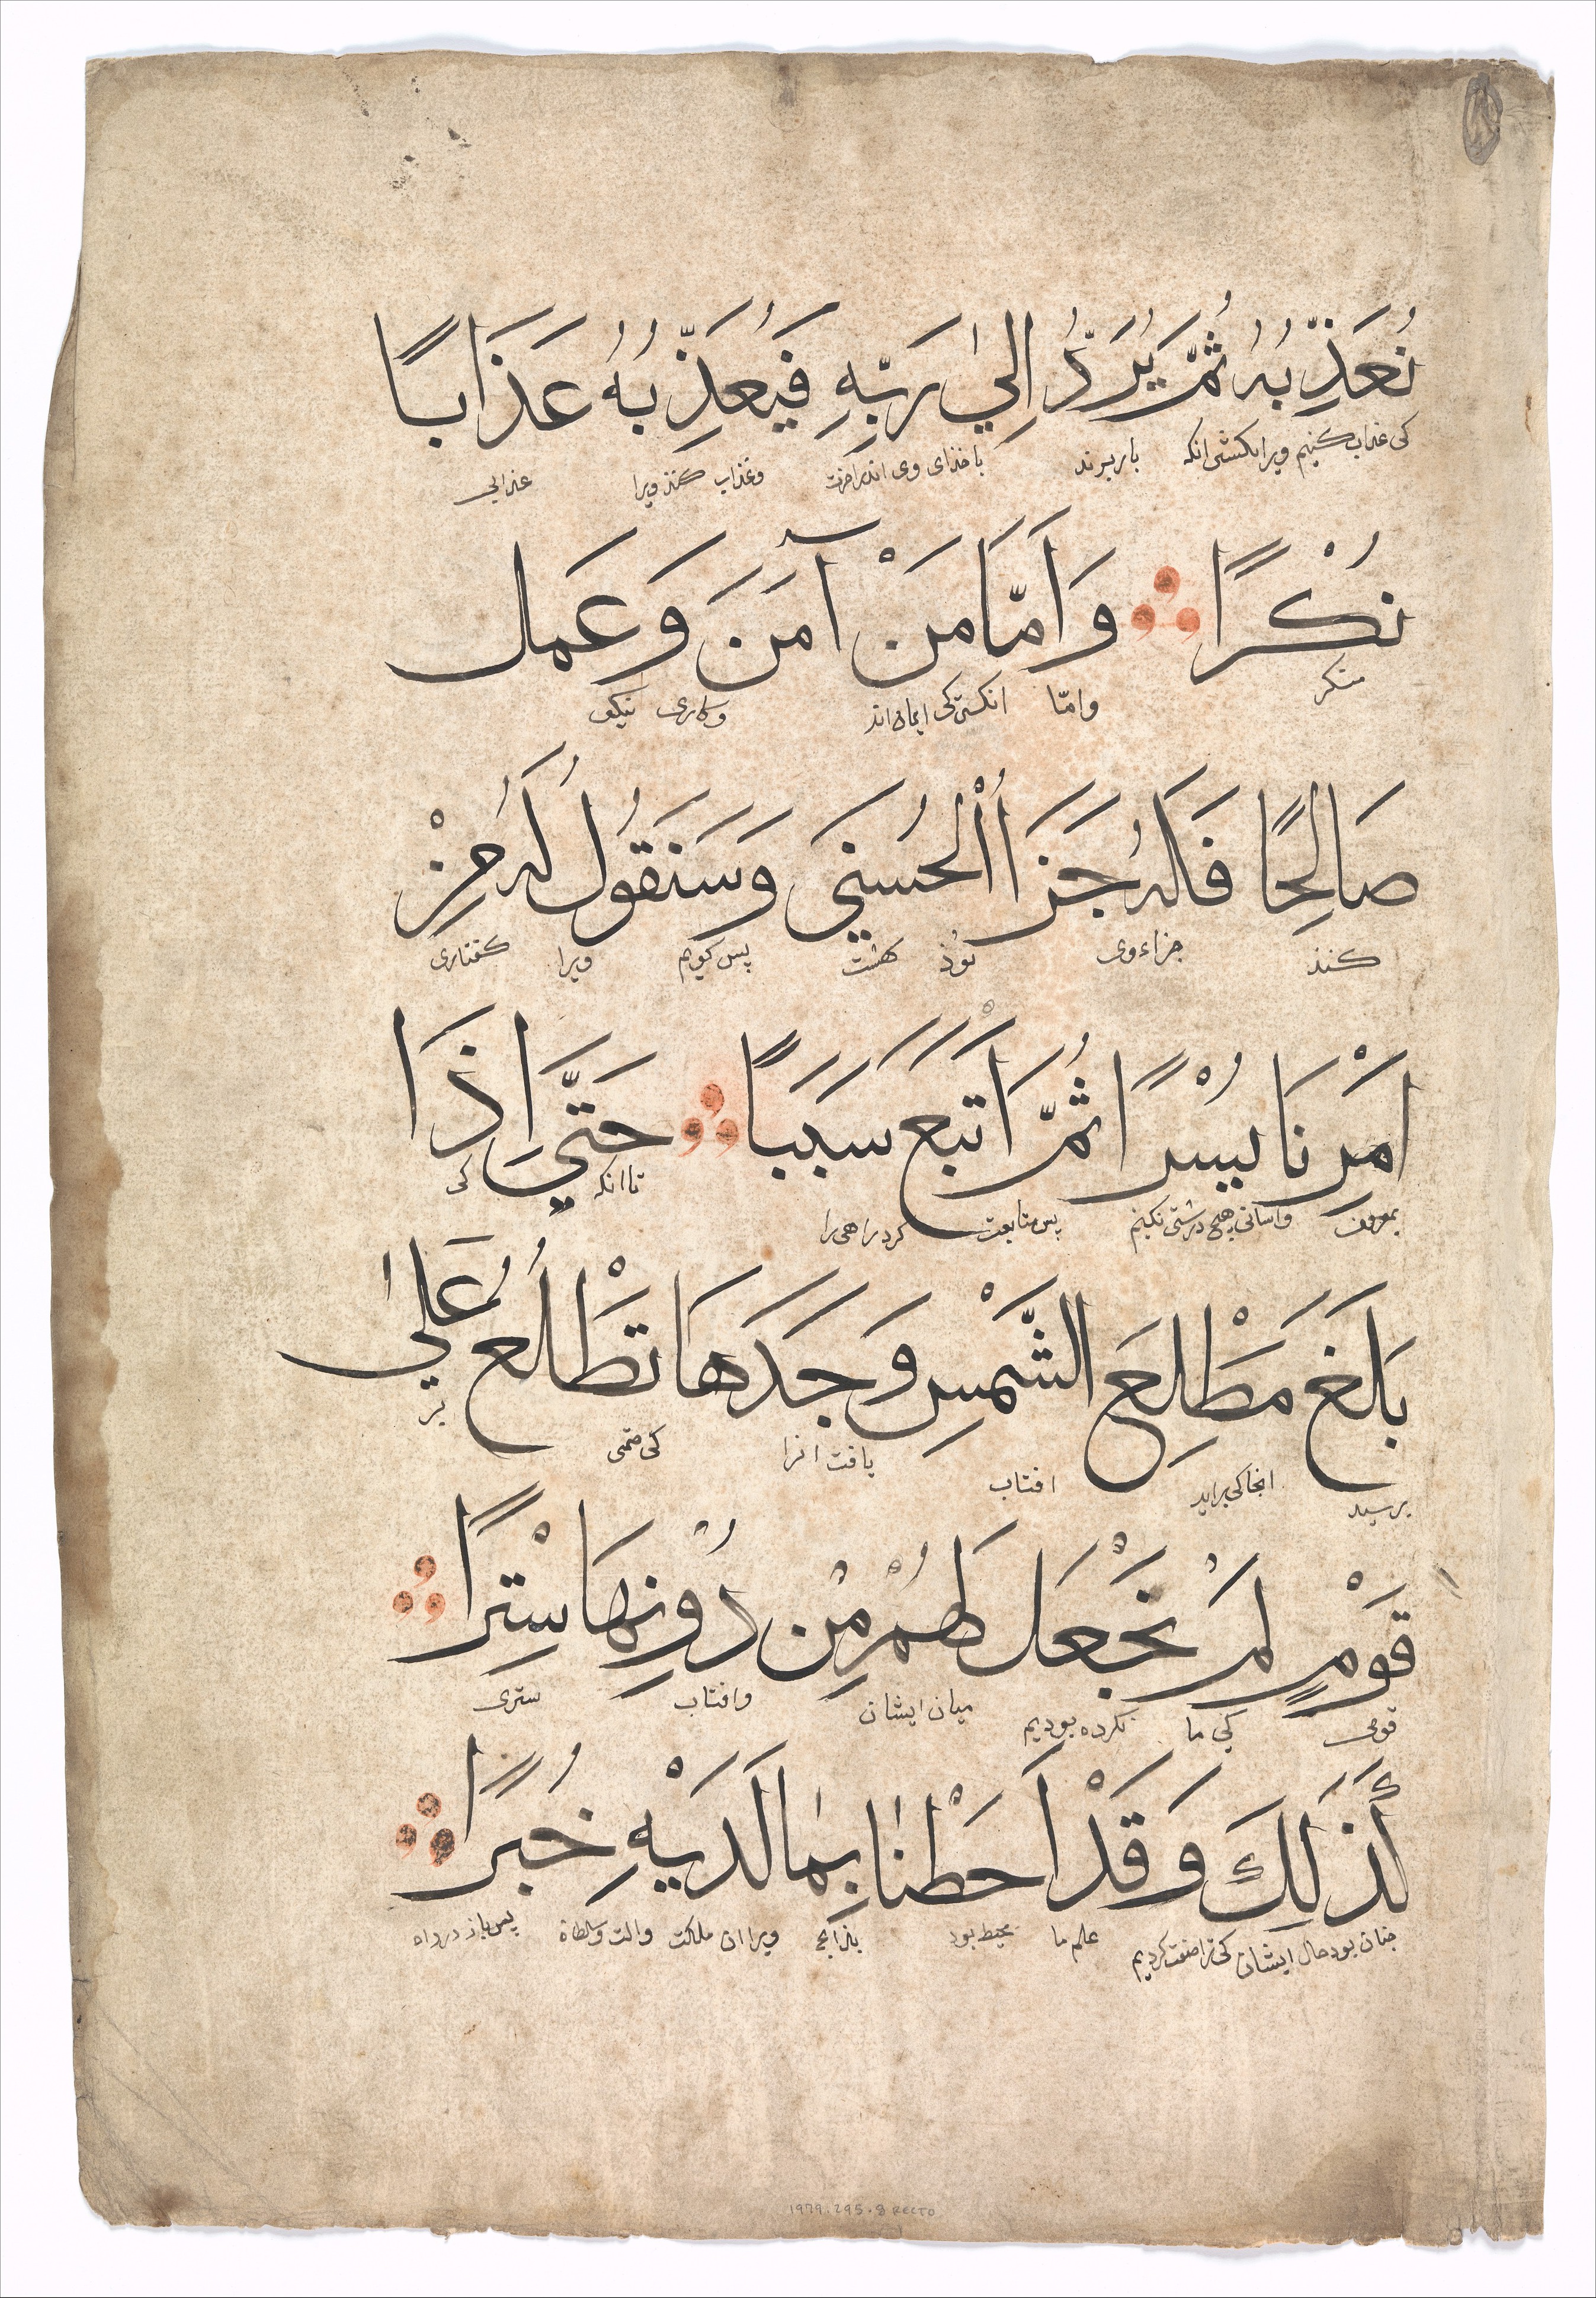 نُعَذِّبُهُ ثُمَّ يُرَدُّ اِلٰي رَبِّهِ فَيُعَذِّبُهُ عَذَابًا
كی عذاب كنیم ویرا باز برند با خذای وی وعذاب كنذ ویرا عذابی
نُكْرًا وَاَمَّا مَنْ آمَنَ وَعَمِل
منكر وامّا انكس كی ایمان وكاری نیكو
صَالِحًا فَلَهُ جَزَا اُالْحُسنَي وَسَنَقُولُ لَهُ مِنْ
كنذ جزاء وی بوذ بهشت پس كویم ویرا كفتاری
اَمْرِنَا يُسْرًا ثُمَّ اَتبَعَ سَبَبًا حَتَّي اِذَا
واسانی هیچ درشتی نكنیم پس متابعت كرد راهی را تا انكه كی
بَلَغَ مَطْلِعَ الشَّمْسِ وَجَدَهَا تَطْلُعُ عَلٰي
برسید انجا كی براید افتاب یافت انرا كی همی بر
قَوْمٍ لَمْ نَجْعَل لَهُمْ مِنْ دُونِهَا سِتْرًا
قومی كی ما نكرده بودیم میان ایشان وافتاب ستری
كَذَلِكَ وَقَدْ اَحَطْنٰا بِمٰا لَدَيْهِ خُبرًا
چنان بود حال ایشان كی ترا صفت كردیم علم ما محیط بود بذانچ ویرا ان مملكت والت پس باز در راه
1979.295.8 RECTO